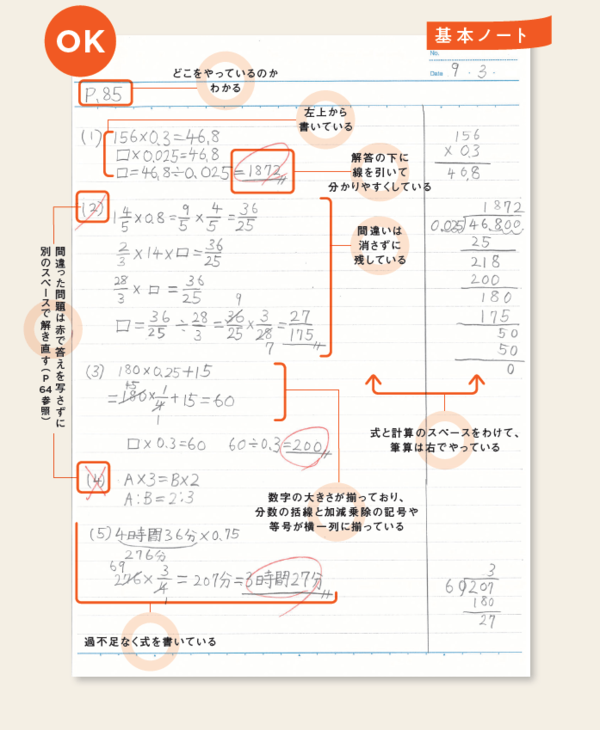 OK
基本ノート
No.
Date 9 . 3 .
どこをやっているのか
わかる
P.85
左上から
書いている
(1) 156×0.3=46.8
□×0.025=46.8
□=46.8÷0.025=1872
解答の下に
線を引いて
分かりやすくしている
156
× 0.3
46.8
(2) 1 4/5 ×0.8= 9/5 × 4/5 = 36/25
2/3 ×14×□= 36/25
28/3 × □ = 36/25
9
□= 36/25 ÷ 28/3 = 36/25 × 3/28 = 27/175
7
間違いは
消さずに
残している
1872
0.025)46.800
25
218
200
180
175
50
50
0
間違った問題は赤で答えを写さずに
別のスペースで解き直す(P64参照)
(3) 180×0.25+15
45
=180× 1/4 +15=60
1
□×0.3=60 60÷0.3=200
式と計算のスペースをわけて、
筆算は右でやっている
(4) A×3=B×2
A:B=2:3
数字の大きさが揃っており、
分数の括線と加減乗除の記号や
等号が横一列に揃っている
(5) 4時間36分×0.75
276分
69
276× 3/4 = 207分=3時間27分
1
3
60)207
180
27
過不足なく式を書いている